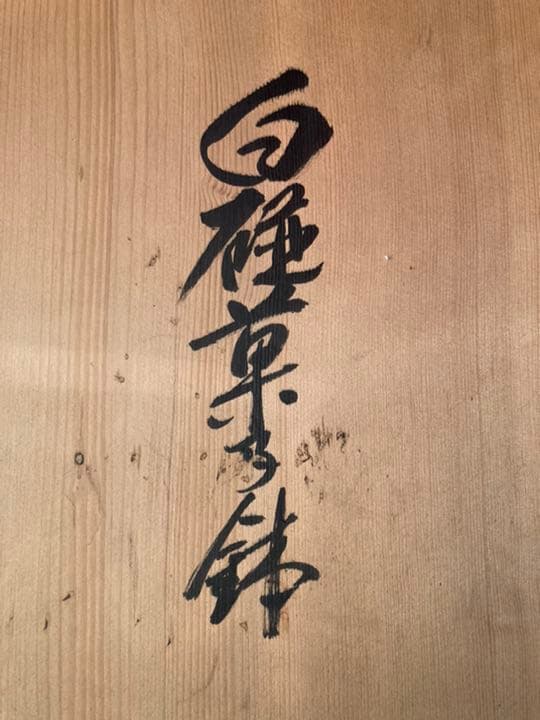 白磁菓子鉢